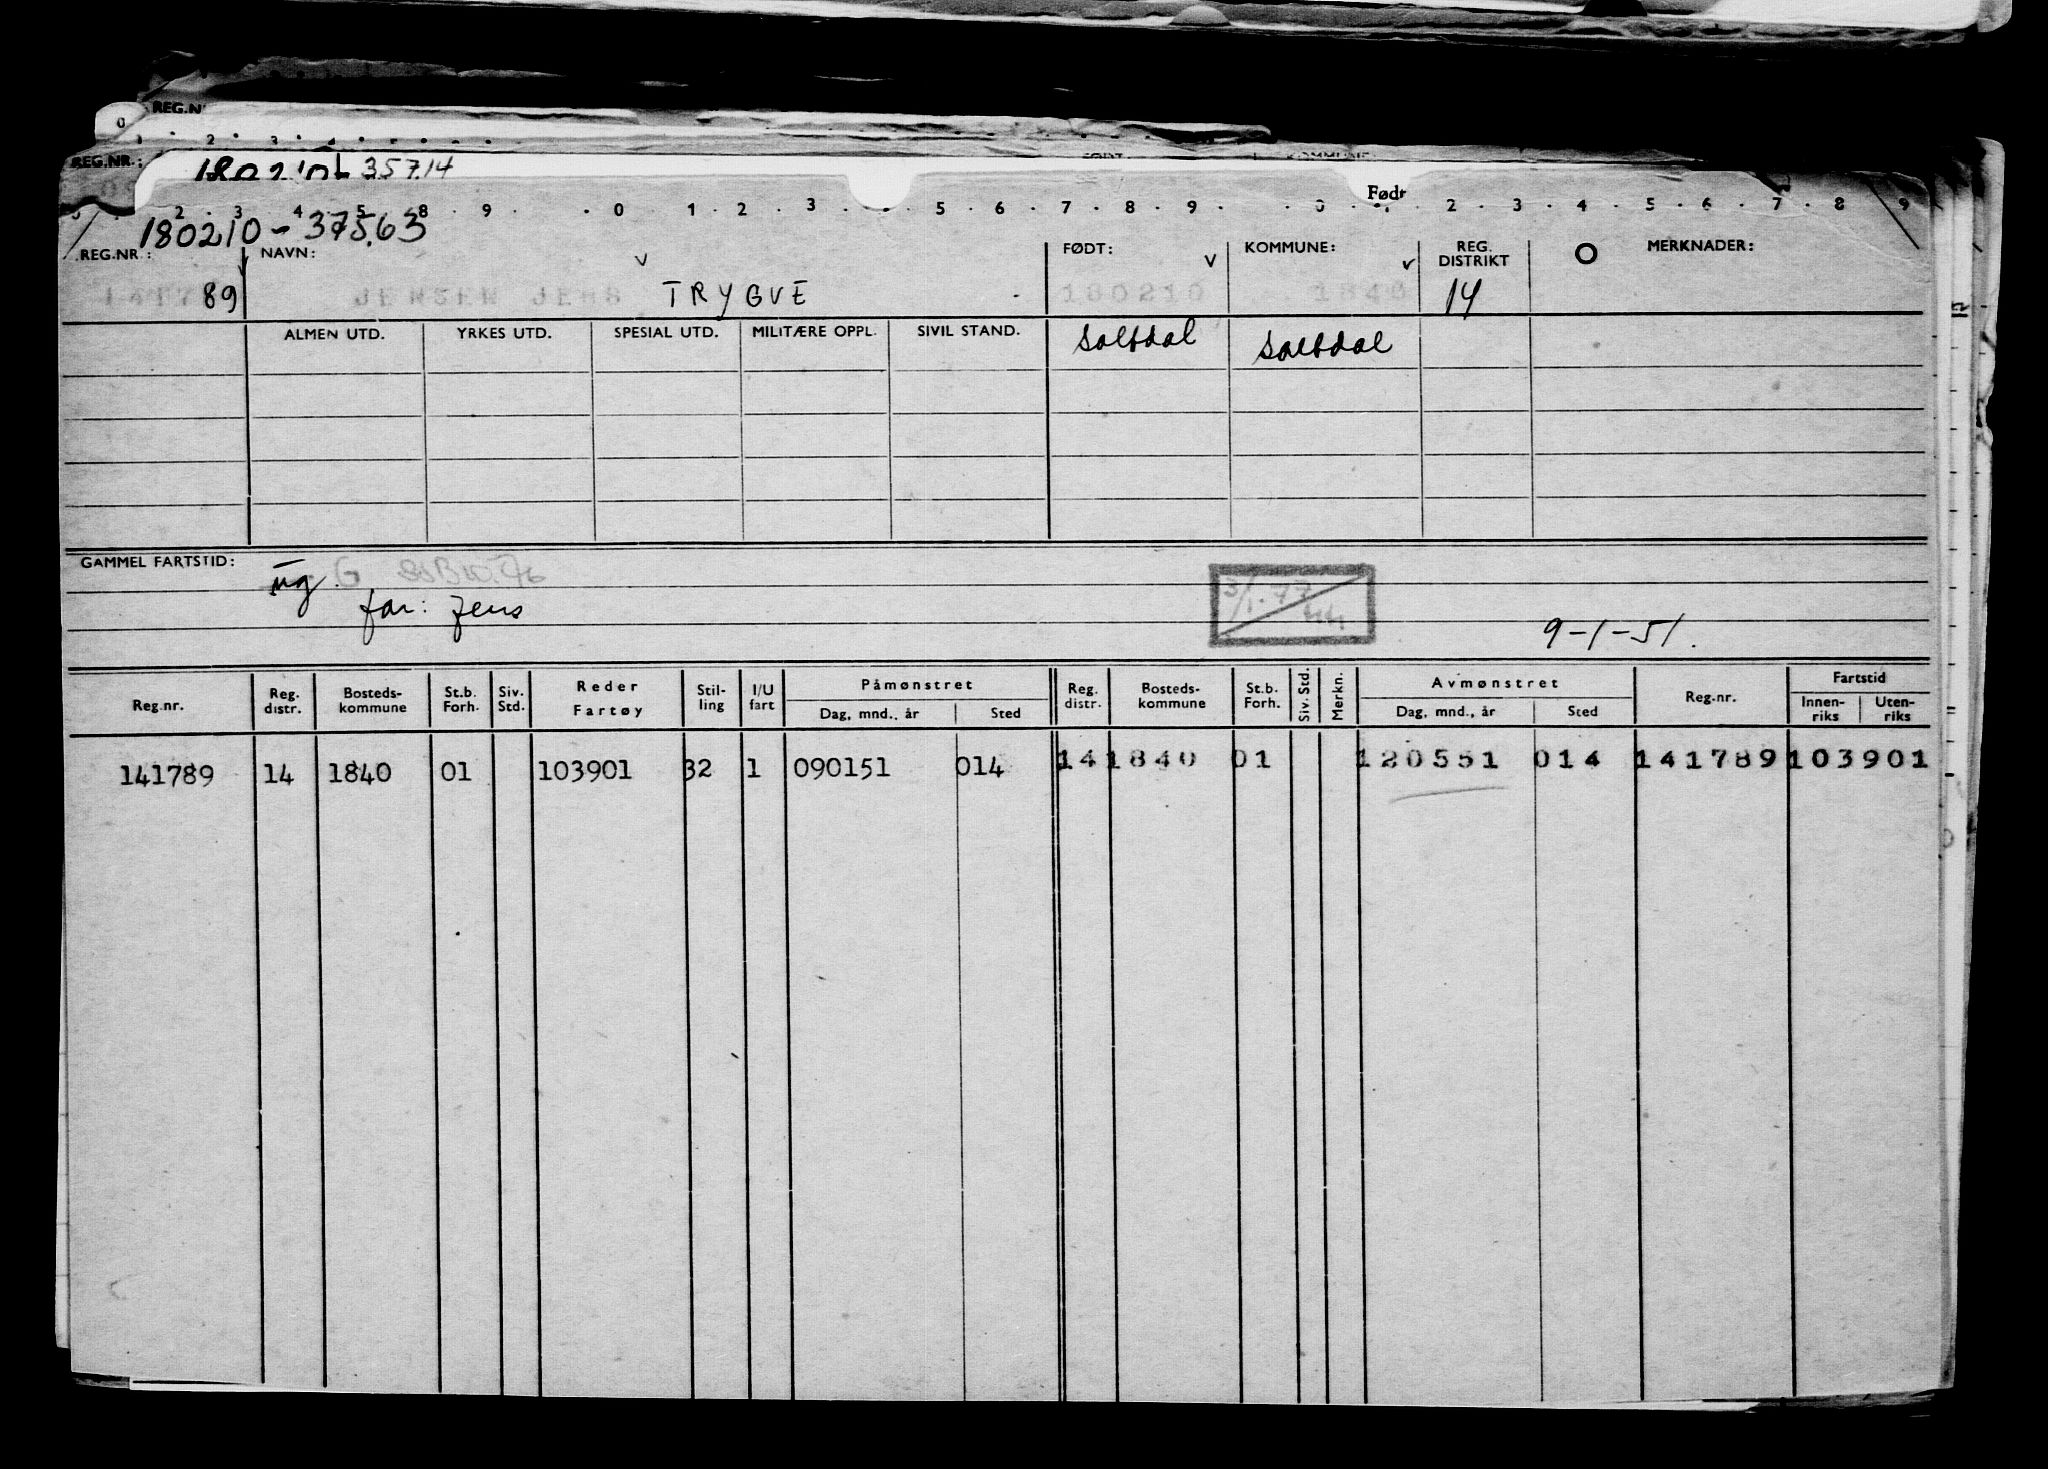 REG.N
0
1 . 2 . 3 . 4 . 5 . 6 .
REG.NR.:
35714
Født
2 . 3 . 4 . 5 8 . 9 . 0 . 1 . 2 . 3 . . 5 . 6 . 7 . 8 . 9 . 0 . . 2 . 3 . 4 . 5 . 6 . 7 . 8 . 9
180210-37563
REG.NR.: NAVN: FØDT: KOMMUNE: REG. DISTRIKT MERKNADER:
89 JENSEN JENS TRYGVE 180210 1840 14
ALMEN UTD. YRKES UTD. SPESIAL UTD. MILITÆRE OPPL. SIVIL STAND. Saltdal Saltdal
GAMMEL FARTSTID: ug G
far: Jens
3/1-77
9-1-51.
Reg.nr. Reg. distr. Bosteds-kommune St.b. Forh. Siv. Std. Reder Fartøy Stil-ling I/U fart Påmønstret Dag, mnd., år Sted Reg. distr. Bosteds-kommune St.b. Forh. Siv. Std. Merkn. Avmønstret Dag, mnd., år Sted Reg.nr. Fartstid Innen-riks Uten-riks
141789 14 1840 01 103901 32 1 090151 014 14 1840 01 120551 014 141789 103901